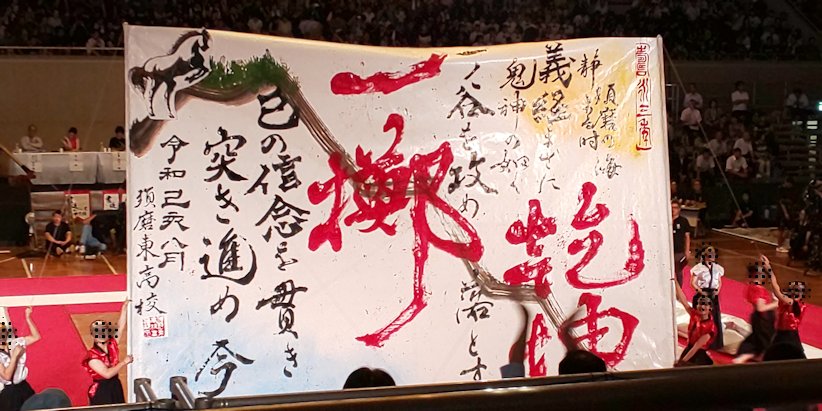 壽永三年
須磨の海
義経
鬼神の如く
一ノ谷を攻め落とす
乾坤
一擲
己の信念を貫き
突き進め 今
令和己亥八月
須磨東高校